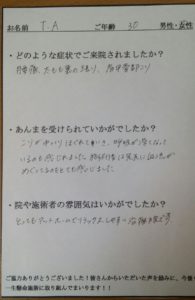 お名前 T.A ご年齢 30 男性・女性
・どのような症状でご来院されましたか？
腰痛、太もも裏の張り、肩甲骨部コリ
・あんまを受けられていかがでしたか？
コリがゆっくりほぐれていき、呼吸が深くなって
いるのを感じました。施術後は全身に血流が
めぐっているのをとても感じました。
・院や施術者の雰囲気はいかがでしたか？
とてもアットホームでリラックスし
ご協力ありがとうございました！皆さんからいただいた声を励みに、今後
一生懸命施術に取り組んでまいります！！